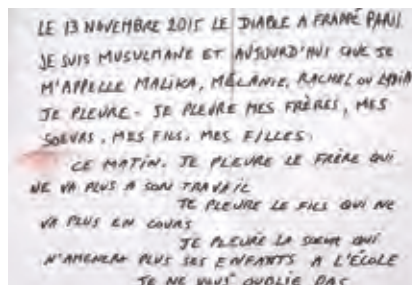 LE 13 NOVEMBRE 2015 LE DIABLE A FRAPPÉ PARIS
JE SUIS MUSULMANE ET AUJOURD'HUI QUE JE
M'APPELLE MALIKA, MÉLANIE, RACHEL OU LYDIA
JE PLEURE. JE PLEURE MES FRÈRES, MES
SOEURS, MES FILS, MES FILLES.
CE MATIN. JE PLEURE LE FRÈRE QUI
NE VA PLUS A SON TRAVAIL
JE PLEURE LE FILS QUI NE
VA PLUS EN COURS
JE PLEURE LA SOEUR QUI
N'AMENERA PLUS SES ENFANTS A L'ÉCOLE
JE NE VOUS OUBLIE PAS